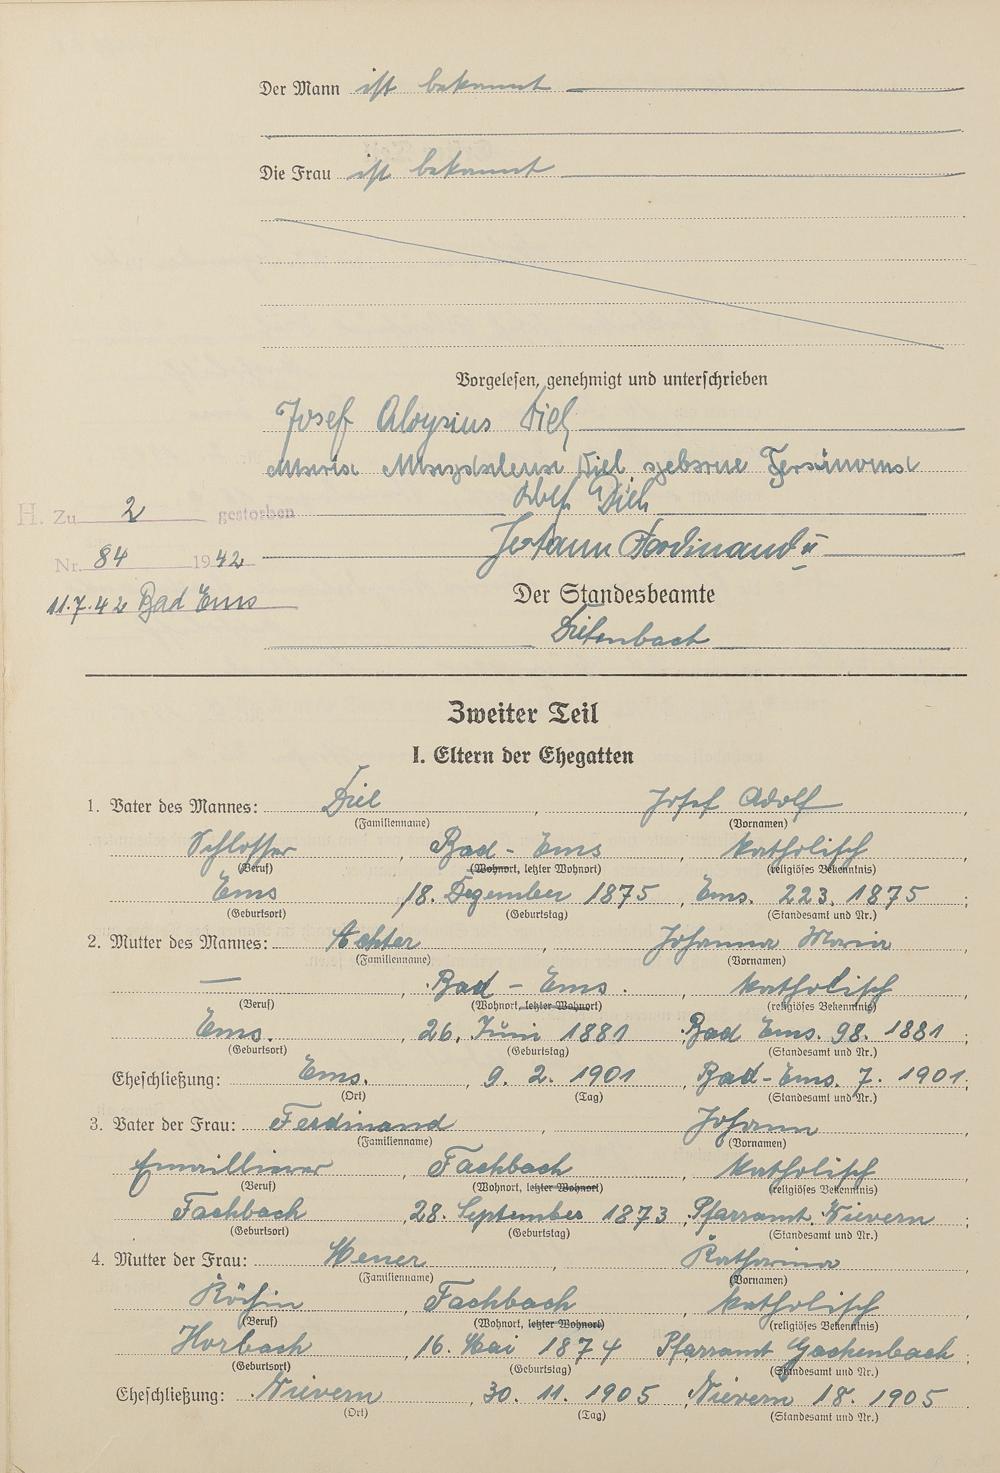 Der Mann ist bekannt
Die Frau ist bekannt
Vorgelesen, genehmigt und unterschrieben
Josef Aloysius Diel
Maria Magdalena Diel geborne Ferdinand
Adolf Diel
Johann Ferdinand
H. Zu 2 gestorben
Nr. 84 1942
11.7.42 Bad Ems
Der Standesbeamte
Diefenbach
Zweiter Teil
I. Eltern der Ehegatten
1. Vater des Mannes: Diel, Josef Adolf,
(Familienname) (Vornamen)
Schlosser, Bad-Ems, katholisch
(Beruf) (Wohnort, letzter Wohnort) (religiöses Bekenntnis)
Ems, 18. Dezember 1875, Ems. 223. 1875;
(Geburtsort) (Geburtstag) (Standesamt und Nr.)
2. Mutter des Mannes: Achter, Johanna Maria,
(Familienname) (Vornamen)
—, Bad-Ems., katholisch,
(Beruf) (Wohnort, letzter Wohnort) (religiöses Bekenntnis)
Ems., 26. Juni 1881, Bad Ems. 98. 1881;
(Geburtsort) (Geburtstag) (Standesamt und Nr.)
Eheschließung: Ems., 9. 2. 1901, Bad-Ems. 7. 1901.
(Ort) (Tag) (Standesamt und Nr.)
3. Vater der Frau: Ferdinand, Johann,
(Familienname) (Vornamen)
Emaillierer, Fachbach, katholisch,
(Beruf) (Wohnort, letzter Wohnort) (religiöses Bekenntnis)
Fachbach, 28. September 1873, Pfarramt. Nievern;
(Geburtsort) (Geburtstag) (Standesamt und Nr.)
4. Mutter der Frau: Katharina,
(Familienname) (Vornamen)
Fachbach, katholisch,
(Beruf) (Wohnort, letzter Wohnort) (religiöses Bekenntnis)
Horbach, 16. Mai 1874 Pfarramt Gackenbach;
(Geburtsort) (Geburtstag) (Standesamt und Nr.)
Eheschließung: Nievern, 30. 11. 1905, Nievern 18. 1905
(Ort) (Tag) (Standesamt und Nr.)